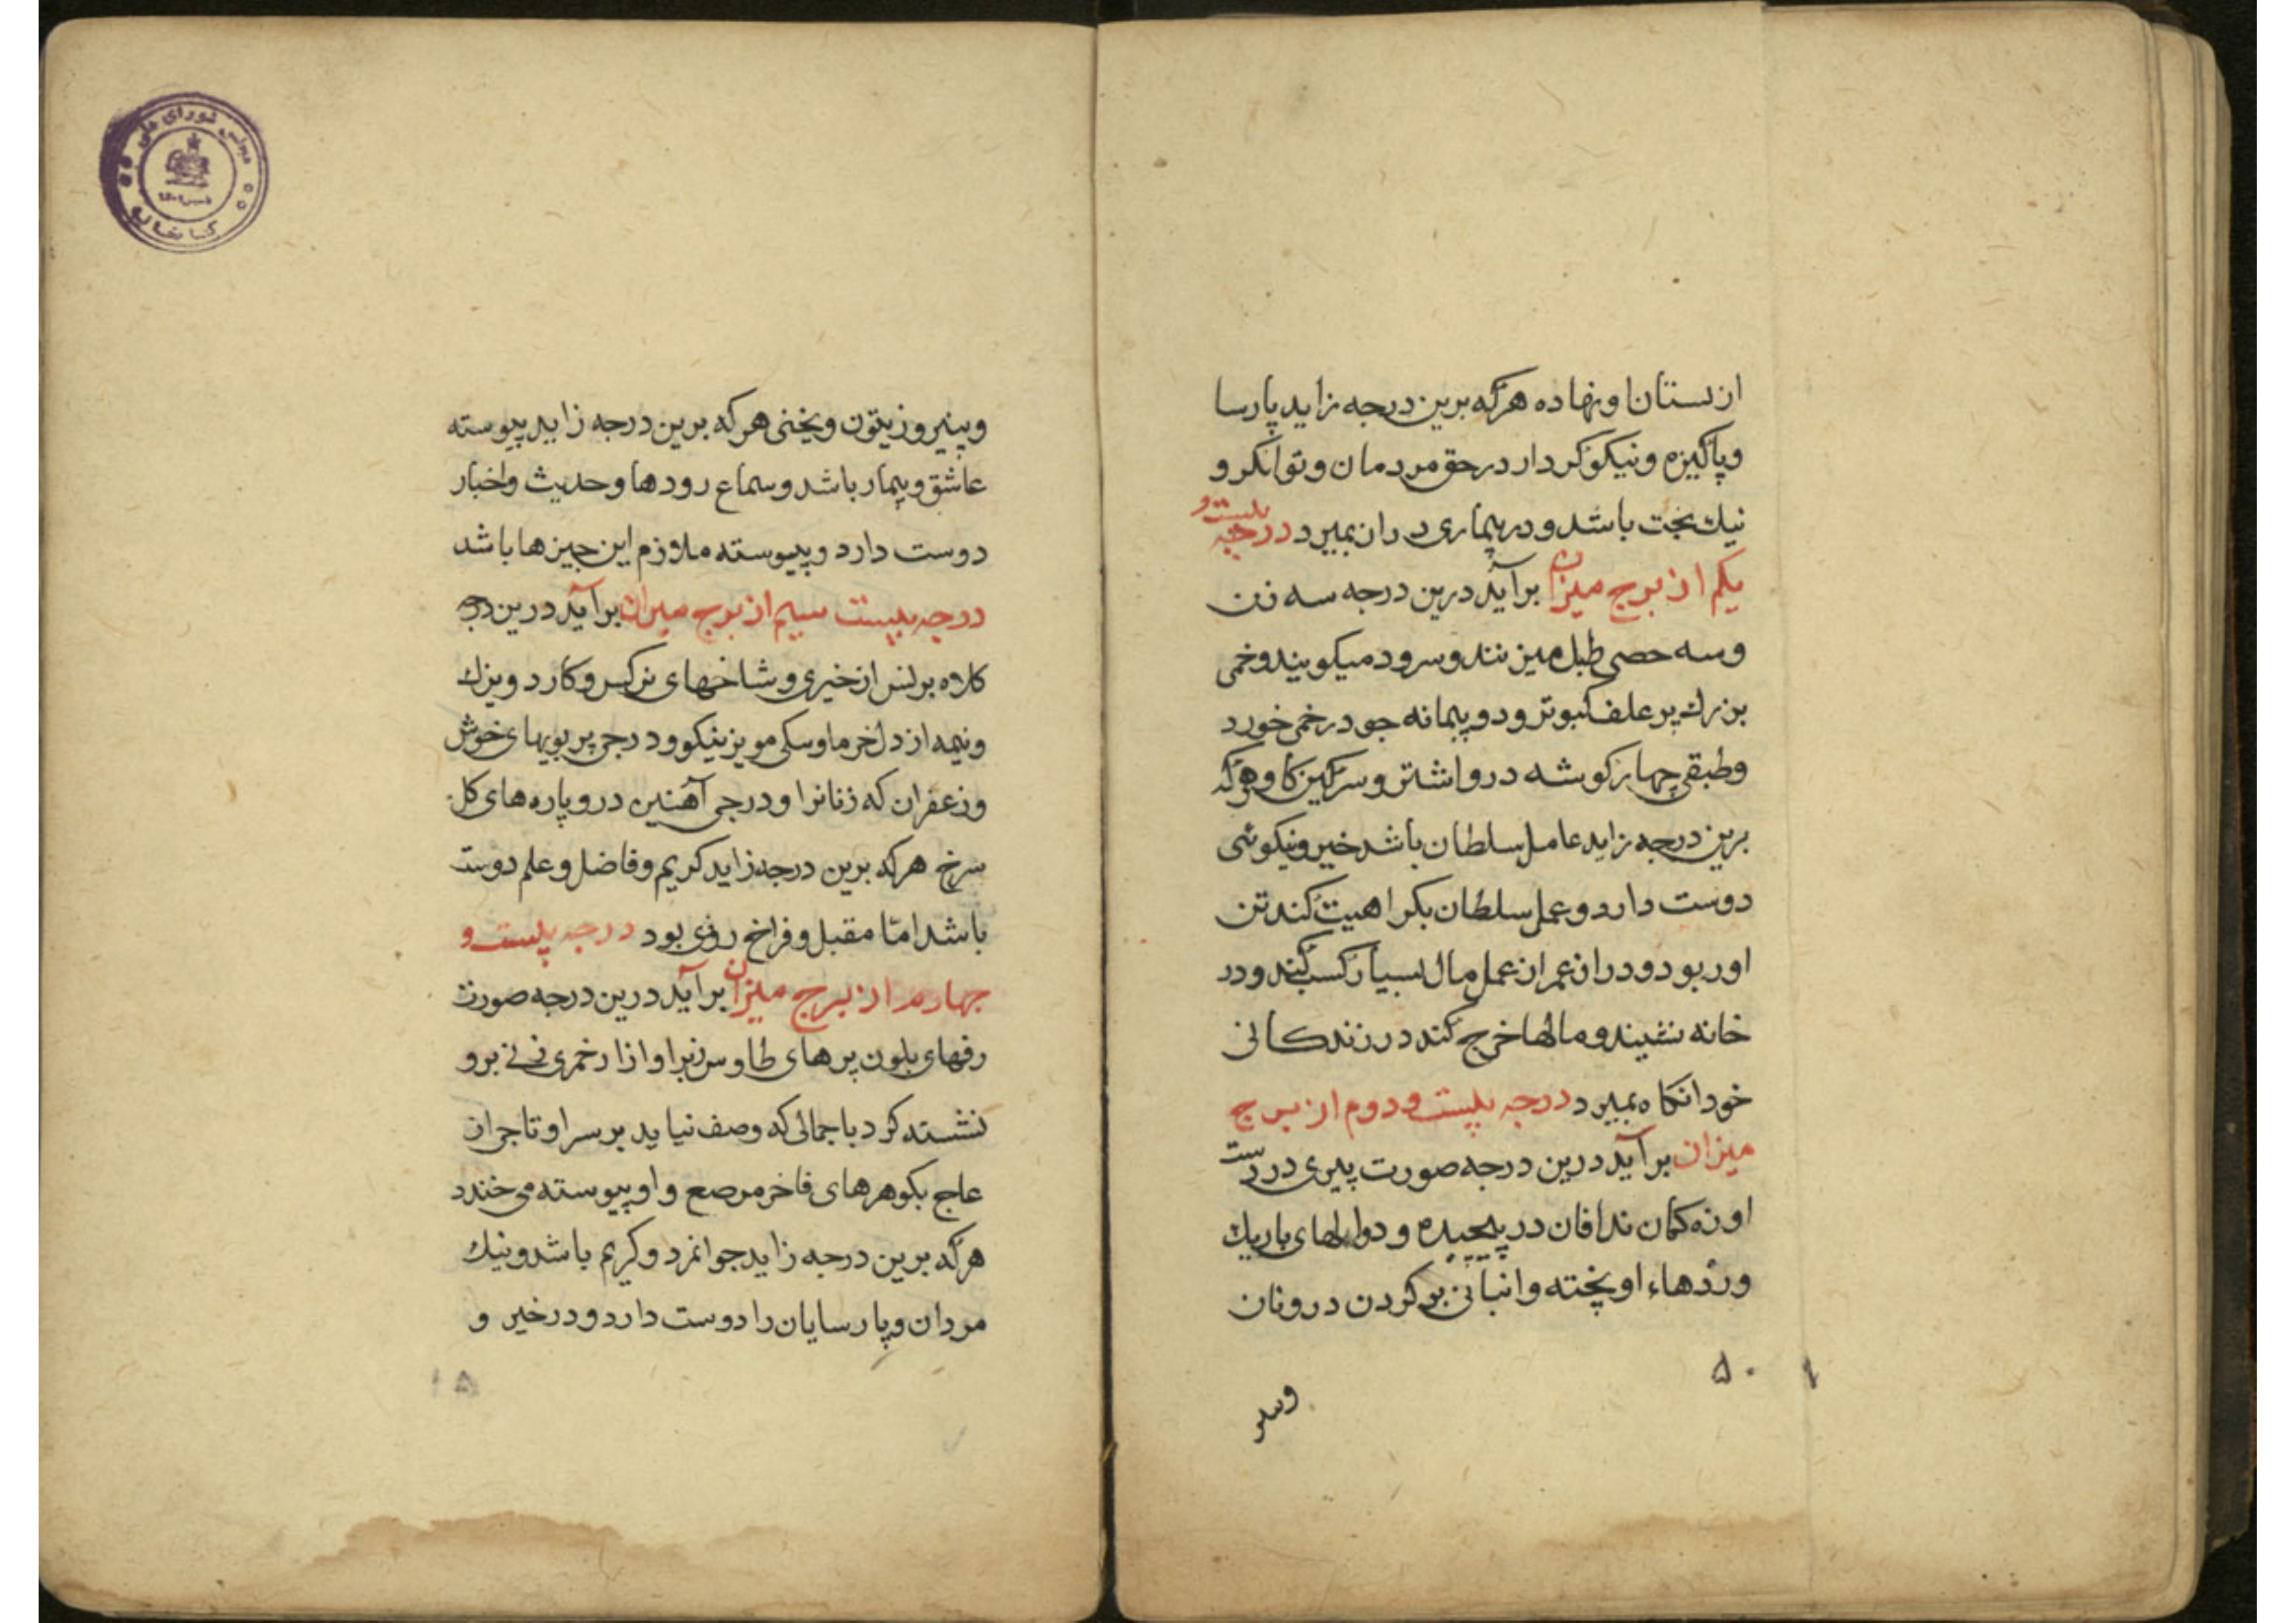 ازبستان او نهاده هرکه برین درجه زاید پارسا
و پاکیزه و نیکو کردار در حق مردمان و توانکر و
نیك بخت باشد و در بیماری دران بمیرد درجه بیست و
یکم از برج میزان برآید درین درجه سه زن
و سه خصی طبل میزنند و سرود میکویند و خمی
بزرك پر علف کبوتر و دو پیمانه جو در خمی خورد
و طبقی چهار کوشه درو اشتر و سرکین کاو هرکه
برین درجه زاید عامل سلطان باشد خیر و نیکوئی
دوست دارد و عمل سلطان بکراهیت کند تن
او ربود و دران عمران عمل مال بسیار کسب کند و در
خانه نشیند و مالها خرج کند در زندکانی
خود انکاه بمیرد درجه بیست و دوم از برج
میزان برآید درین درجه صورت پیری در دست
او زه کمان ندافان در پیچیده و دوالهای باریك
و رذهاء اویخته وانبانی بر کردن درو نان
۵۰
وپنیر
و پنیر و زیتون و یخنی هرکه برین درجه زاید پیوسته
عاشق و بیمار باشد و سماع رودها و حدیث و اخبار
دوست دارد و پیوسته ملازم این چیزها باشد
درجه بیست سیم از برج میزان برآید درین درجه
کلاه برنس از خیری و شاخهای نرکس و کارد و نزك
و نیمه از دل خرما و سکی مویز نیکو و درجی پر بویهای خوش
و زعفران که زنانرا و درجی آهنین درو پاره های کل
سرخ هرکه برین درجه زاید کریم و فاضل و علم دوست
باشد امّا مقبل و فراخ روزی بود درجه بیست و
چهارم از برج میزان برآید درین درجه صورت
رفهای بلون پرهای طاوس زبرا و ازار خمری زنی برو
نشسته کرد با جمالی که وصف نیاید بر سر او تاجی از
عاج بکوهرهای فاخر مرصع و او پیوسته می خندد
هرکه برین درجه زاید جوانمرد و کریم باشد و نیك
مردان و پارسایان را دوست دارد و در خیر و
۵۱
کتابخانه مجلس شورای ملی